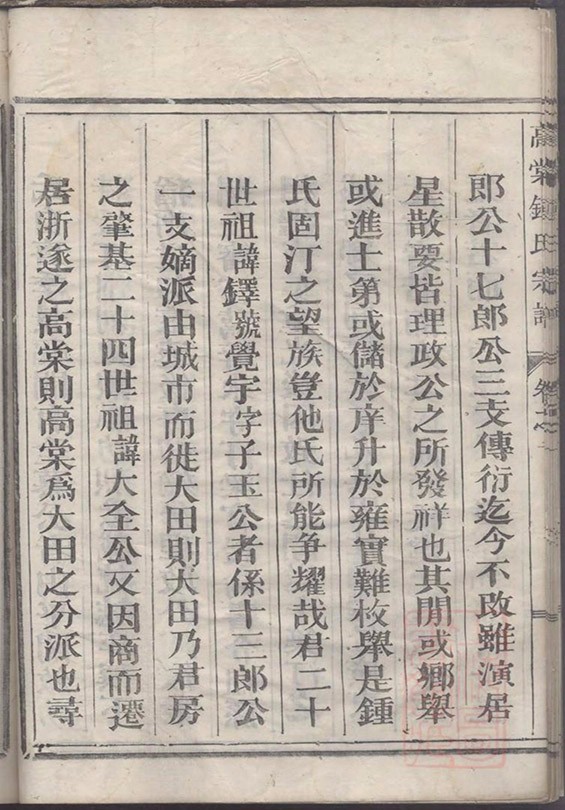 高棠鍾氏宗譜
郎公十七郎公三支傳衍迄今不改雖演居
星散要皆理政公之所發祥也其閒或鄉舉
或進士第或儲於庠升於雍實難枚舉是鍾
氏固汀之望族豈他氏所能争耀哉君二十
世祖諱鐸號覺宇字子玉公者係十三郎公
一支嫡派由城市而徙大田則大田乃君房
之肇基二十四世祖諱大全公又因商而遷
居浙遂之高棠則高棠爲大田之分派也尋